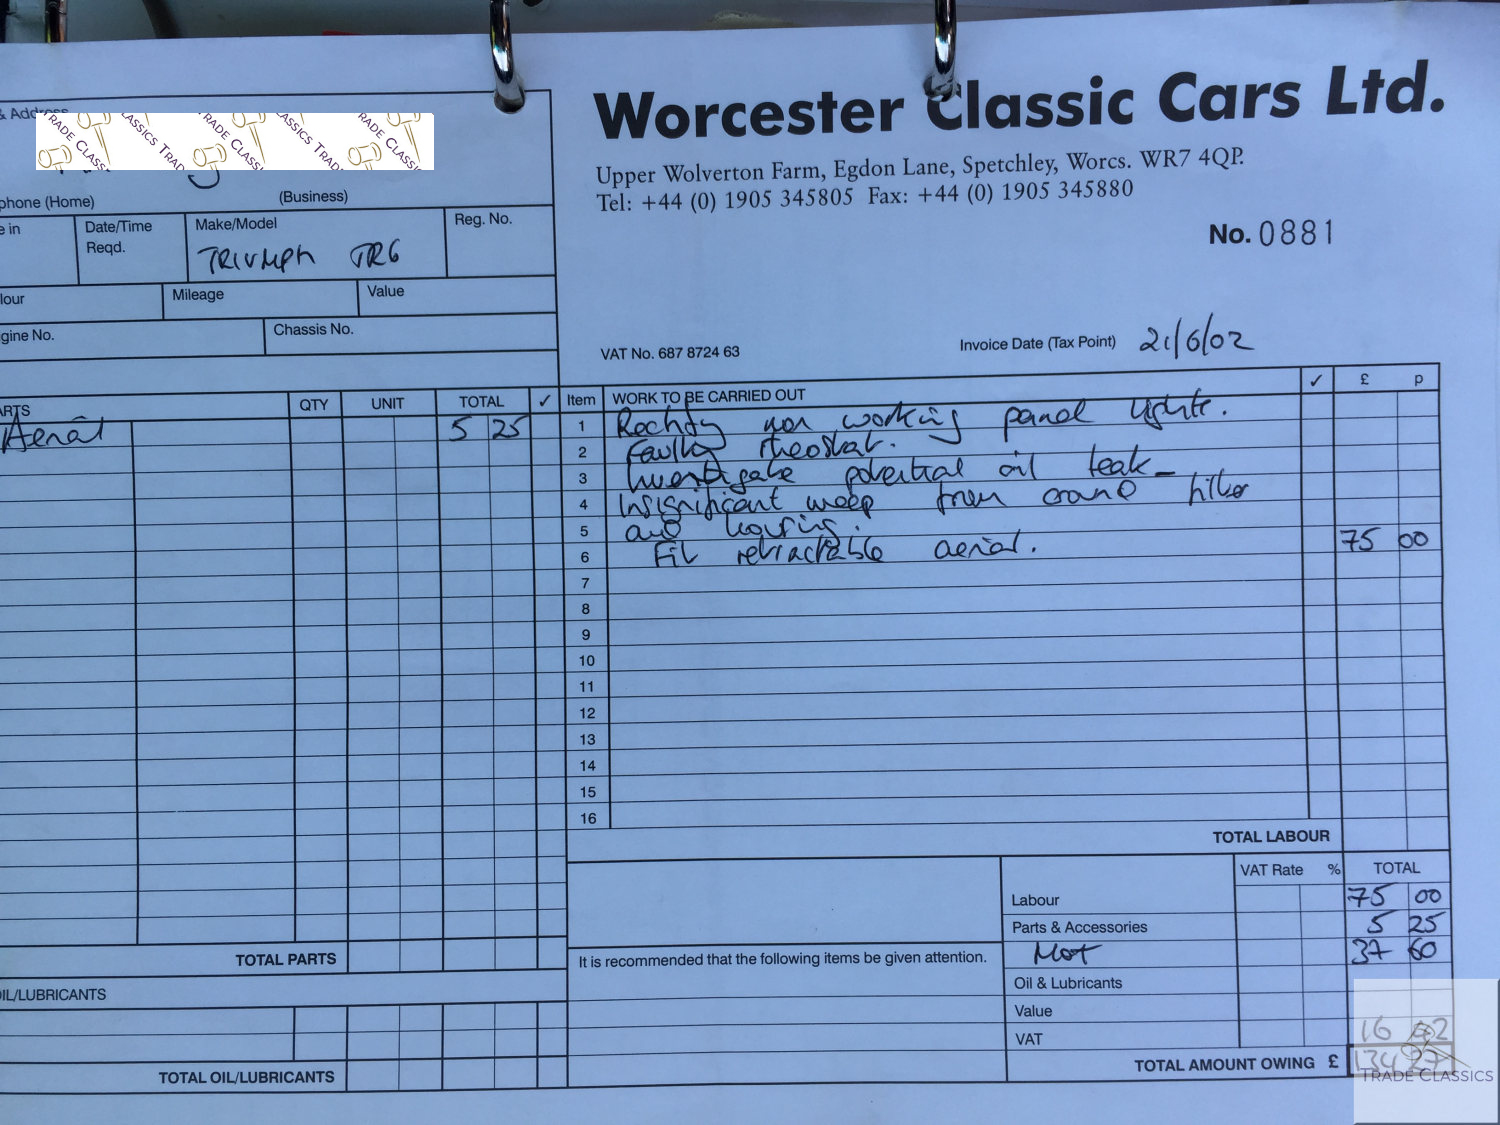 Worcester Classic Cars Ltd.
Upper Wolverton Farm, Egdon Lane, Spetchley, Worcs. WR7 4QP.
Tel: +44 (0) 1905 345805 Fax: +44 (0) 1905 345880
No. 0881
& Address
TRADE CLASSICS
phone (Home) (Business)
e in Date/Time Reqd. Make/Model Reg. No.
TRIUMPH TR6
lour Mileage Value
gine No. Chassis No.
VAT No. 687 8724 63 Invoice Date (Tax Point) 21/6/02
ARTS QTY UNIT TOTAL ✓ Item WORK TO BE CARRIED OUT ✓ £ p
Aerial 5 25 1 Rectify non working panel lights.
2 Faulty rheostat.
3 Investigate potential oil leak -
4 Insignificant weep from around filter
5 and housing.
6 Fit retractable aerial. 75 00
7
8
9
10
11
12
13
14
15
16
TOTAL LABOUR
VAT Rate % TOTAL
Labour 75 00
Parts & Accessories 5 25
TOTAL PARTS It is recommended that the following items be given attention. Mot 37 60
OIL/LUBRICANTS Oil & Lubricants
Value
VAT 16 42
TOTAL OIL/LUBRICANTS TOTAL AMOUNT OWING £ 134 27
TRADE CLASSICS